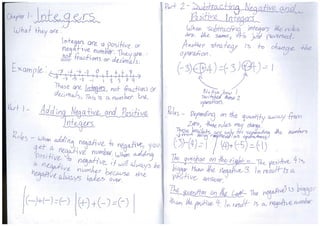 Chapter 1- Integers
What they are
Integers are a positive or
negative number. They are
not fractions or decimals.
Example
These are Integers, not fractions or
decimals. This is a number line.
Part 1 - Adding Negative and Positive
Integers
Rules - When adding negative to negative, you
get a negative number. When adding
positive to negative, it will always be
a negative number because the
negative always takes over.
(-)+(-)=(-) (+)+(-)=(-)
Part 2 - Subtracting Negative and
Positive Integers
When subtracting integers the rules
are the same,
Another strategy is to change the
operation.
Rules - Depending on the quantity away from
zero, these rules may change.
These brackets are only for separating the numbers
(3)-(4)=1 (4)+(-5)=(-1)
The question on the right = The positive 4 is
bigger than the negative 3. In result is a
positive answer.
The question on the left- The negative is bigger
than the positive 4. In result is a negative number